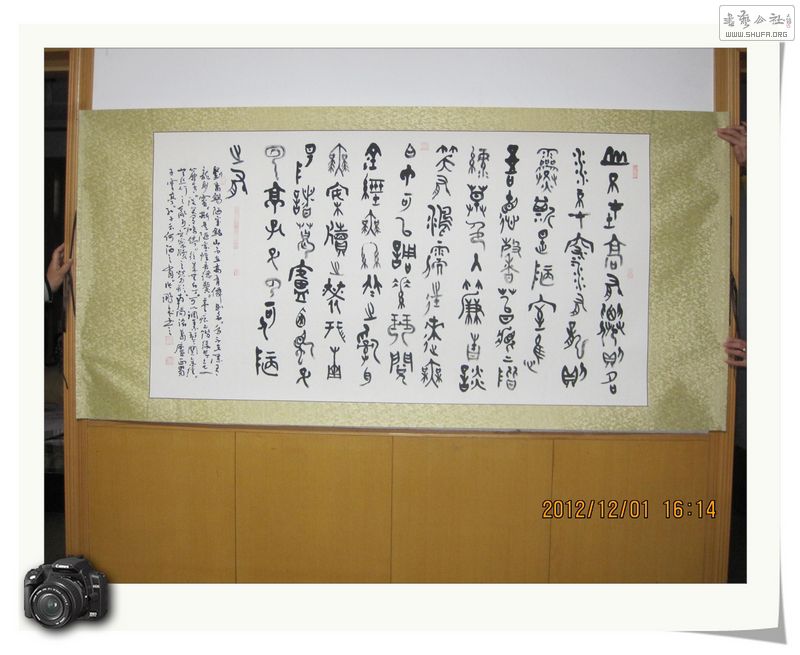 書藝公社
WWW.SHUFA.ORG
山不在高有僊則名
水不在深有龍則
靈斯是陋室惟
吾德馨苔痕上階
綠草色入簾青談
笑有鴻儒往來無
白丁可以調素琴閱
金經無絲竹之亂耳
無案牘之勞形南
陽諸葛廬西蜀子
雲亭孔子曰何陋
之有
劉禹錫陋室銘山不在高有僊則名
2012/12/01 16:14
Canon